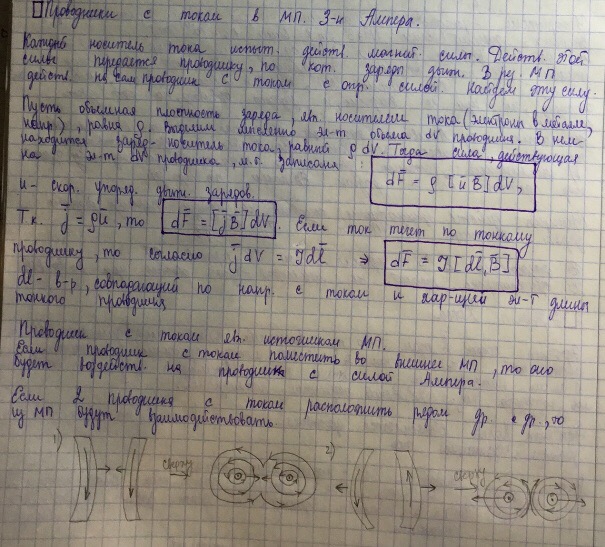 Проводники с током в МП. З-н Ампера.
Каждый носитель тока испыт. действ. магнит. силы. Действ. этой
силы передается проводнику, по кот. заряды движ. В рез. МП
действ. на сам проводник с током с опр. силой. Найдем эту силу.
Пусть объемная плотность заряда, явл. носителем тока (электроны в металле,
напр.), равна ρ. Выделим мысленно эл-т объема dV проводника. В нем
находится заряд-носитель тока, равный ρ dV. Тогда сила, действующая
на эл-т dV проводника, м.б. записана: dF̄ = ρ [ū B̄] dV,
ū - скор. упоряд. движ. зарядов.
Т.к. j̄ = ρū, то dF̄ = [j̄ B̄] dV. Если ток течет по тонкому
проводнику, то согласно j̄ dV = J dl̄ ⇒ dF̄ = J [dl̄, B̄]
dl̄ - в-р, совпадающий по напр. с током и хар-щий эл-т длины
тонкого проводника
Проводник с током явл. источником МП.
Если проводник с током поместить во внешнее МП, то оно
будет воздейств. на проводник с силой Ампера.
Если 2 проводника с током расположить рядом др. с др., то
их МП будут взаимодействовать
1) сверху 2) сверху